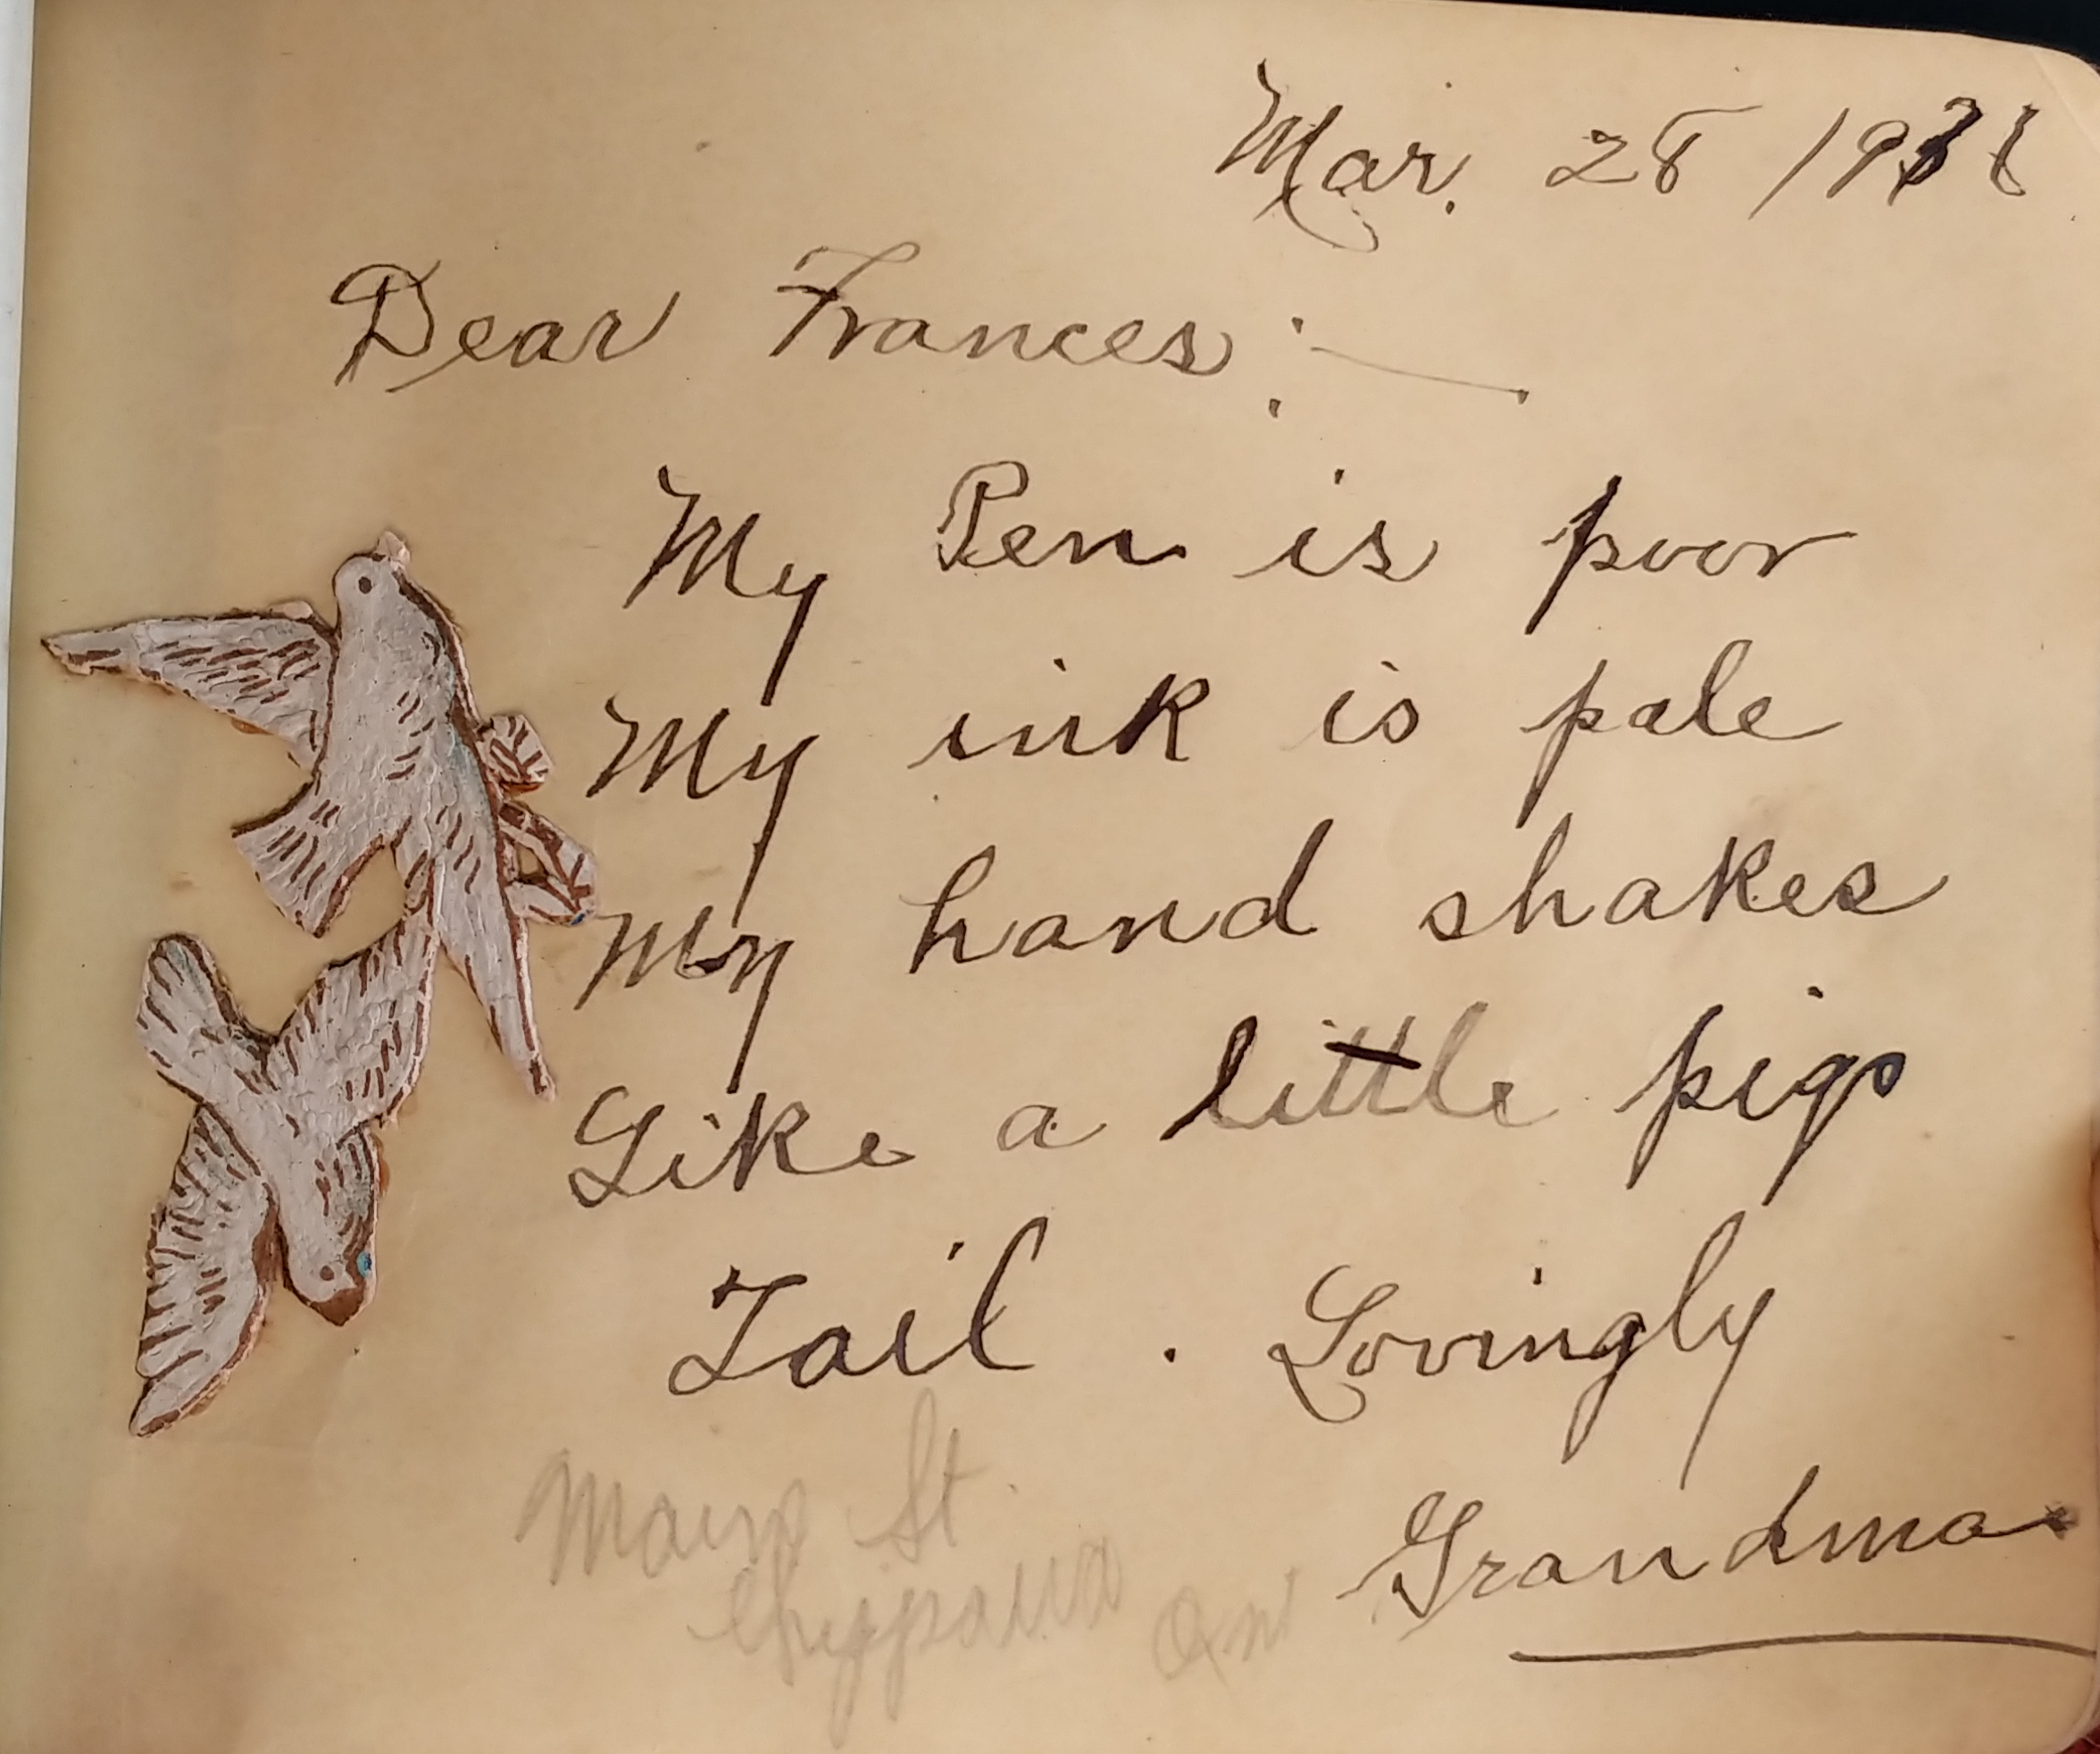 Mar. 28 1931
Dear Frances:—
My Pen is poor
My ink is pale
My hand shakes
Like a little pigs
Tail . Lovingly
Grandma
Main St.
Chippawa Ont